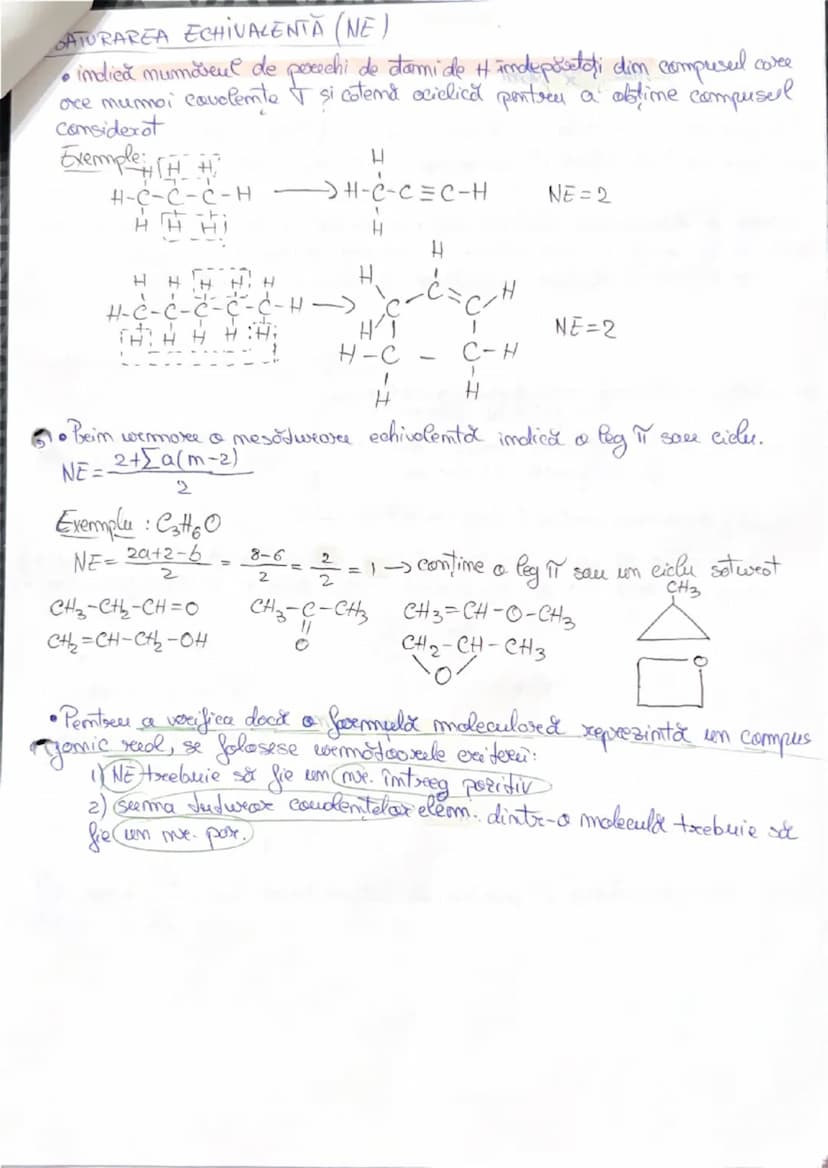 SATURAREA ECHIVALENTĂ (NE)
• indică numărul de perechi de atomi de H îndepărtați din compusul care
are numai covalențe σ și catenă aciclică pentru a obține compusul
considerat
Exemple:
H H H
H-C-C-C-H → H-C-C≡C-H NE=2
H H H
H
H
H H H H H
H-C-C-C-C-C-H →
H H H H H
H H C=C H
H C C-H
H-C - C-H
H H
NE=2
• Prin urmare o nesăturare echivalentă indică o leg π sau ciclu.
NE = 2+Σa(m-2) / 2
Exemplu: C₃H₆O
NE= 2a+2-b / 2 = 8-6 / 2 = 2 / 2 = 1 → conține o leg π sau un ciclu saturat
CH₃-CH₂-CH=O CH₃-C-CH₃ CH₃=CH-O-CH₃ CH₃
O
CH₂=CH-CH₂-OH CH₂-CH-CH₃
O O
• Pentru a verifica dacă o formulă moleculară reprezintă un compus
ganic real, se folosesc următoarele criterii:
1) NE trebuie să fie un nr. întreg pozitiv
2) suma tuturor covalențelor elem. dintr-o moleculă trebuie să
fie un nr. par.